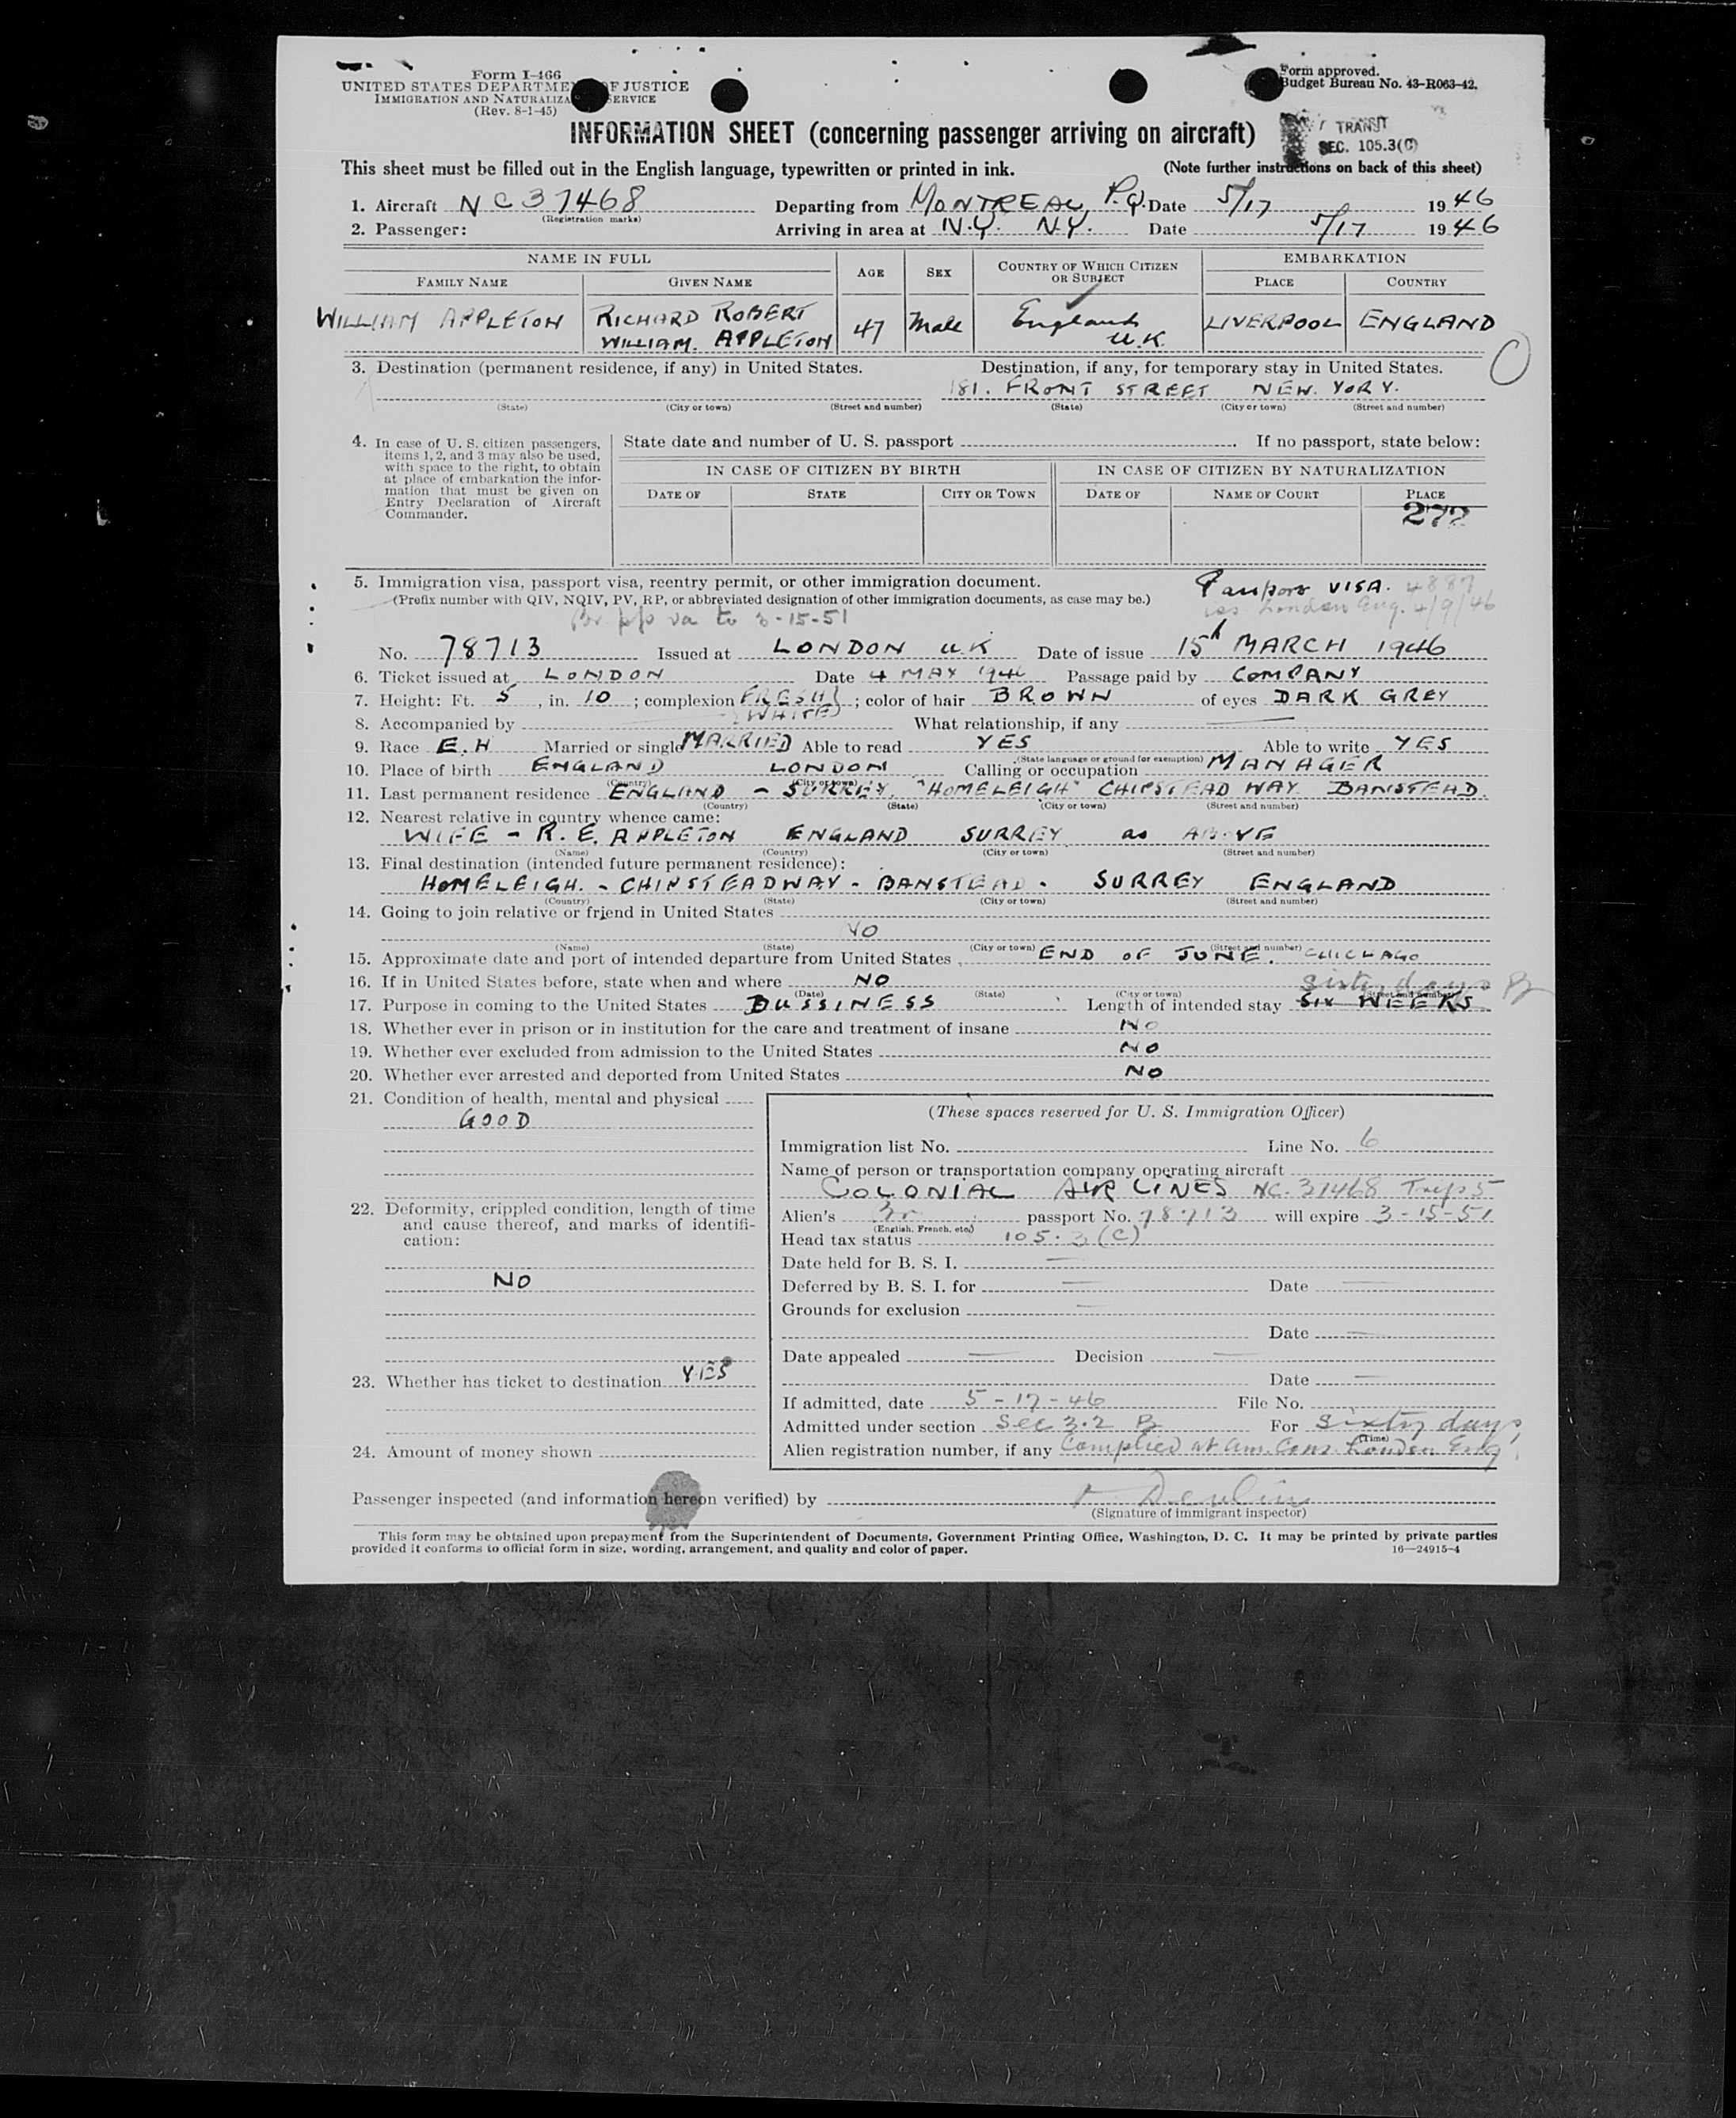 Form I-466
UNITED STATES DEPARTMENT OF JUSTICE
IMMIGRATION AND NATURALIZATION SERVICE
(Rev. 8-1-45)
Form approved.
Budget Bureau No. 43-R063-42.
INFORMATION SHEET (concerning passenger arriving on aircraft)
TRANSIT
SEC. 105.3(C)
This sheet must be filled out in the English language, typewritten or printed in ink. (Note further instructions on back of this sheet)
1. Aircraft NC 31468 Departing from MONTREAL, P.Q. Date 5/17 1946
(Registration marks)
2. Passenger: Arriving in area at N.Y. N.Y. Date 5/17 1946
NAME IN FULL AGE SEX COUNTRY OF WHICH CITIZEN OR SUBJECT EMBARKATION
FAMILY NAME GIVEN NAME PLACE COUNTRY
WILLIAM APPLETON RICHARD ROBERT WILLIAM. APPLETON 47 Male England U.K. LIVERPOOL ENGLAND
3. Destination (permanent residence, if any) in United States. Destination, if any, for temporary stay in United States.
181. FRONT STREET NEW. YORK.
(State) (City or town) (Street and number) (State) (City or town) (Street and number)
4. In case of U. S. citizen passengers, items 1, 2, and 3 may also be used, with space to the right, to obtain at place of embarkation the information that must be given on Entry Declaration of Aircraft Commander.
State date and number of U. S. passport . If no passport, state below:
IN CASE OF CITIZEN BY BIRTH IN CASE OF CITIZEN BY NATURALIZATION
DATE OF STATE CITY OR TOWN DATE OF NAME OF COURT PLACE
272
5. Immigration visa, passport visa, reentry permit, or other immigration document. Passport VISA. 4887
(Prefix number with QIV, NQIV, PV, RP, or abbreviated designation of other immigration documents, as case may be.) iss London Eng. 4/9/46
Br p/p va to 3-15-51
No. 78713 Issued at LONDON U.K Date of issue 15h MARCH 1946
6. Ticket issued at LONDON Date 4 MAY 1946 Passage paid by COMPANY
7. Height: Ft. 5, in. 10; complexion FRESH (WHITE); color of hair BROWN of eyes DARK GREY
8. Accompanied by What relationship, if any
9. Race E.H Married or single MARRIED Able to read YES Able to write YES
(State language or ground for exemption)
10. Place of birth ENGLAND LONDON Calling or occupation MANAGER
(Country) (City or town)
11. Last permanent residence ENGLAND - SURREY, "HOMELEIGH" CHIPSTEAD WAY BANSTEAD.
(Country) (State) (City or town) (Street and number)
12. Nearest relative in country whence came:
WIFE - R. E. APPLETON ENGLAND SURREY as ABOVE
(Name) (Country) (City or town) (Street and number)
13. Final destination (intended future permanent residence):
HOMELEIGH. - CHIPSTEADWAY - BANSTEAD - SURREY ENGLAND
(Country) (State) (City or town) (Street and number)
14. Going to join relative or friend in United States
NO
(Name) (State) (City or town) (Street and number)
15. Approximate date and port of intended departure from United States END OF JUNE. CHICHAGO
16. If in United States before, state when and where NO
(Date) (State) (City or town) (Street and number)
sixty days B
17. Purpose in coming to the United States BUSSINESS Length of intended stay SIX WEEKS
18. Whether ever in prison or in institution for the care and treatment of insane NO
19. Whether ever excluded from admission to the United States NO
20. Whether ever arrested and deported from United States NO
21. Condition of health, mental and physical
GOOD
22. Deformity, crippled condition, length of time and cause thereof, and marks of identification:
NO
23. Whether has ticket to destination YES
24. Amount of money shown
(These spaces reserved for U. S. Immigration Officer)
Immigration list No. Line No. 6
Name of person or transportation company operating aircraft
COLONIAL AIR LINES NC. 31468 Trip 5
Alien's Br passport No. 78713 will expire 3-15-51
(English, French, etc.)
Head tax status 105.3(C)
Date held for B. S. I.
Deferred by B. S. I. for Date
Grounds for exclusion
Date
Date appealed Decision
Date
If admitted, date 5-17-46 File No.
Admitted under section Sec 3.2 B For sixty days
(Time)
Alien registration number, if any Complied at Am. Cons. London Eng.
Passenger inspected (and information hereon verified) by Devlin
(Signature of immigrant inspector)
This form may be obtained upon prepayment from the Superintendent of Documents, Government Printing Office, Washington, D. C. It may be printed by private parties
provided it conforms to official form in size, wording, arrangement, and quality and color of paper. 16—24915-4